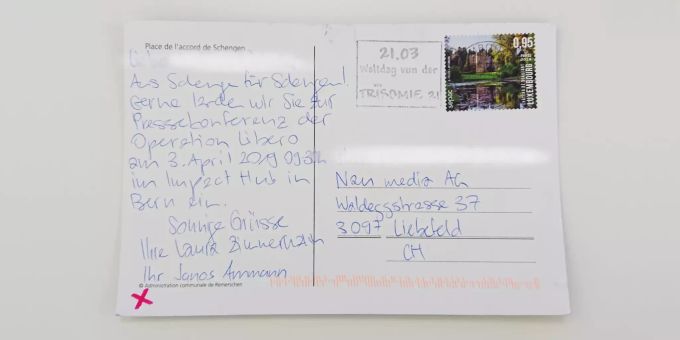 Place de l'accord de Schengen
Aus Schengen für Schengen!
Gerne laden wir Sie zur
Pressekonferenz der
Operation Libero
am 3. April 2019 09.30h
im Impact Hub in
Bern ein.
Sonnige Grüsse
Ihre Laura Zimmermann
Ihr Janos Ammann
© Administration communale de Remerschen
21.03
Weltdag vun der
TRISOMIE 21
0,95
LUXEMBOURG
Nau media AG
Waldeggstrasse 37
3097 Liebefeld
CH